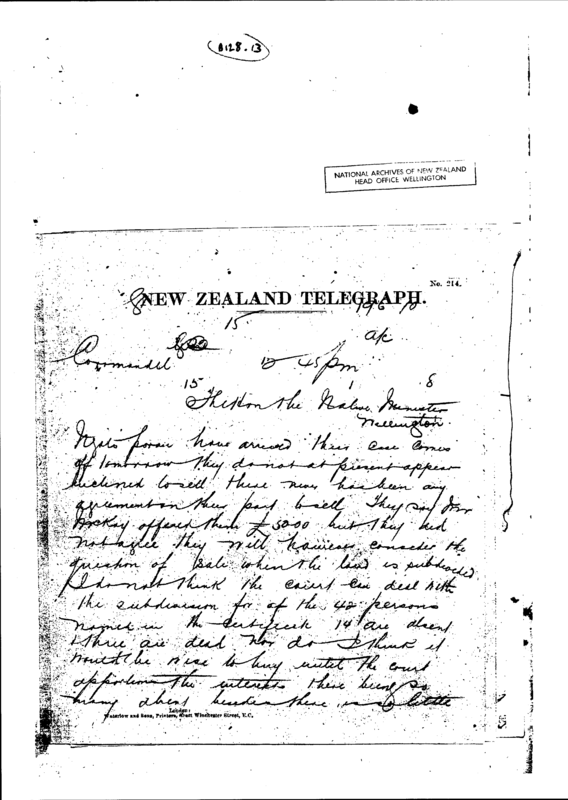 B128.13
NATIONAL ARCHIVES OF NEW ZEALAND
HEAD OFFICE WELLINGTON
No. 214.
NEW ZEALAND TELEGRAPH.
15
Coromandel 12 45 pm
15 8
The Hon the Native Minister
Wellington
have arrived their case comes
off tomorrow they do not at present appear
inclined to sell there never has been any
agreement on their part to sell They say Mr
McKay offered them £5000 but they did
not agree they will however consider the
question of sale when the land is subdivided
I do not think the court can deal with
the subdivision for of the 42 persons
named in the certificate 14 are absent
& three are dead nor do I think it
would be wise to buy until the court
apportions the interests there being so
many absent besides there is so little
London:
Waterlow and Sons, Printers, Great Winchester Street, E.C.